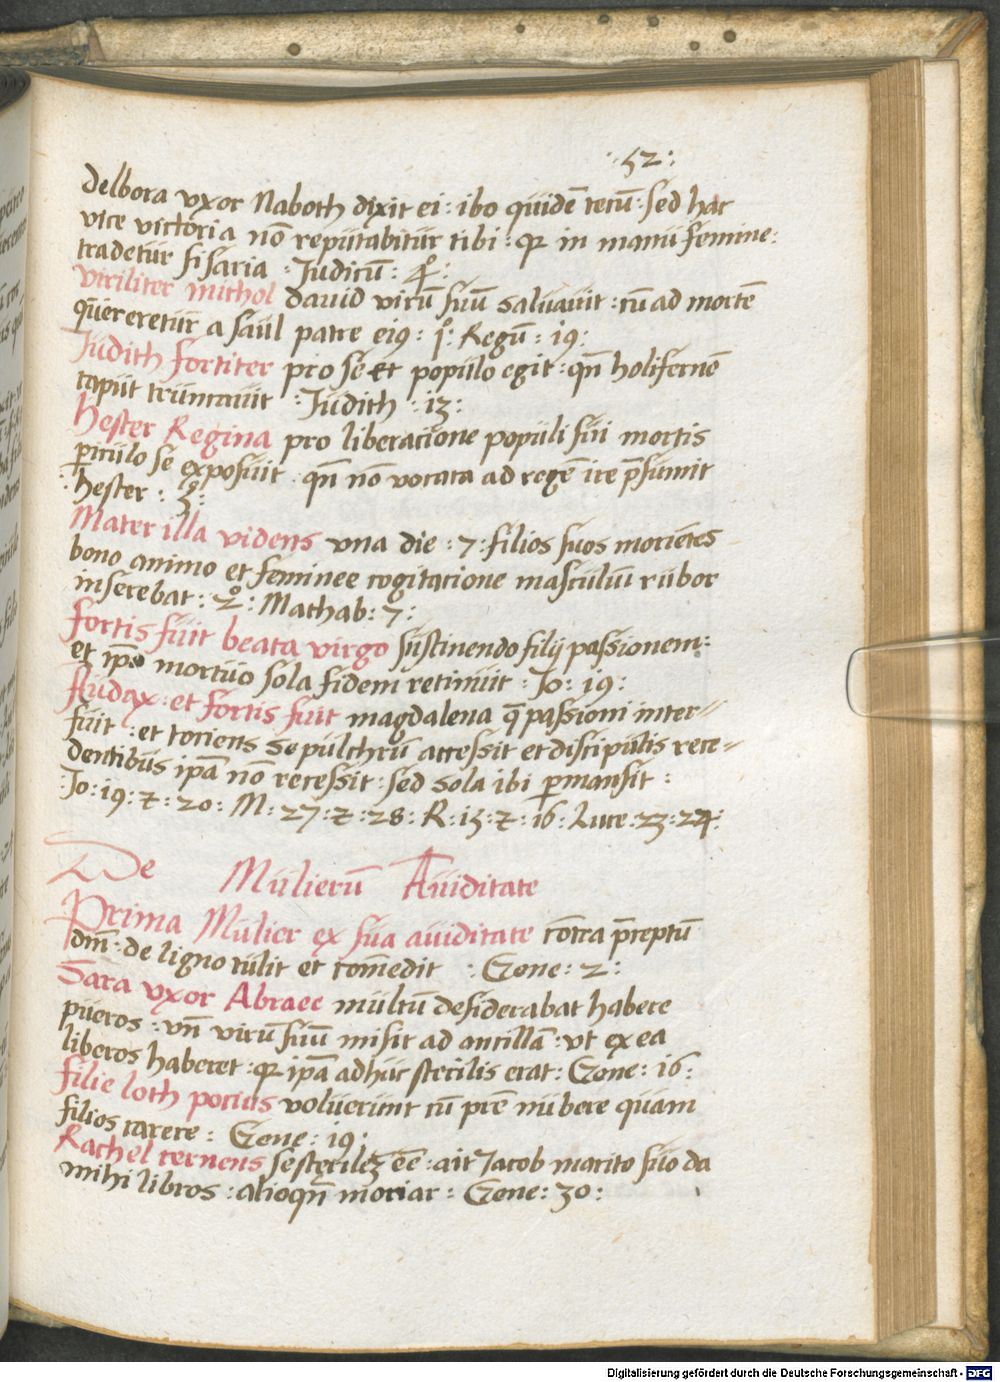 :52:
delbora vxor Naboth dixit ei : ibo quidē tecū : sed hac
vice victoria nō reputabitur tibi : qr in manu femine :
tradetur sisaria : Judicū : 4º :
viriliter michol dauid virū suū saluauit : cū ad mortē
quereretur a saul patre ei9 : jº : Regū : i9 :
Judith fortiter pro se et populo egit : qn̄ holifernē
caput truncauit : Judith : i3 :
Hester Regina pro liberacione populi sui mortis
ꝑiculo se exposuit qn̄ nō vocata ad regē ire p̄sumit
: hester : :
Mater illa videns vna die : 7 : filios suos moriētes
bono animo et feminee cogitacione masculum rubor
inserebat : 2º : Mathab : 7 :
fortis fuit beata virgo sustinendo filij passionem :
et ip̄o mortuo sola fidem retinuit : Jo : i9 :
Audax : et fortis fuit magdalena q̄ passioni inter=
fuit : et tociens sepulchrū accessit et discipulis rece=
dentibus ip̄a nō recessit : sed sola ibi ꝑmansit :
: Jo : i9 : z : 20 : M : 27 : z : 28 : R : i5 : z : i6 : Luce : 23 : 24 :
De Mulierū Auiditate
Prima Mulier ex sua auiditate cōtra p̄ceptū
dm̄ : de ligno tulit et com̄edit : Gene : 2 :
Sara vxor Abrae multū desiderabat habere
pueros : vn̄ virū suū misit ad ancillā : vt ex ea
liberos haberet : qr ip̄a adhuc sterilis erat : Gene : i6 :
filie loth pocius voluerunt cū pr̄e nubere quam
filios carere : Gene : i9 :
Rachel cernens se sterilē ēē : ait Jacob marito suo da
mihi libros : alioqn̄ moriar : Gene : 30 :
Digitalisierung gefördert durch die Deutsche Forschungsgemeinschaft - DFG